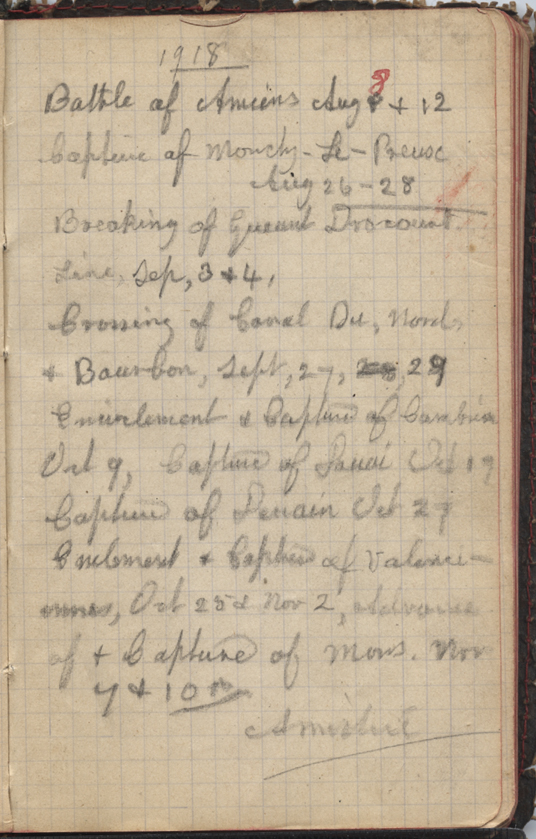 1918
Battle of Amiens Aug 8 + 12
Capture of Monchy-Le-Preux
Aug 26-28
Breaking of Queant Drocourt
Line, Sep, 3 + 4,
Crossing of Canal Du, Nord,
+ Bourbon, Sept, 27, 28, 29
Encirlement + Capture of Cambrai
Oct 9, Capture of Douai Oct 19
Capture of Denain Oct 27
+ Capture of Valence-
Oct 25 + Nov 2, Advance
of + Capture of Mons. Nov
7 + 10th